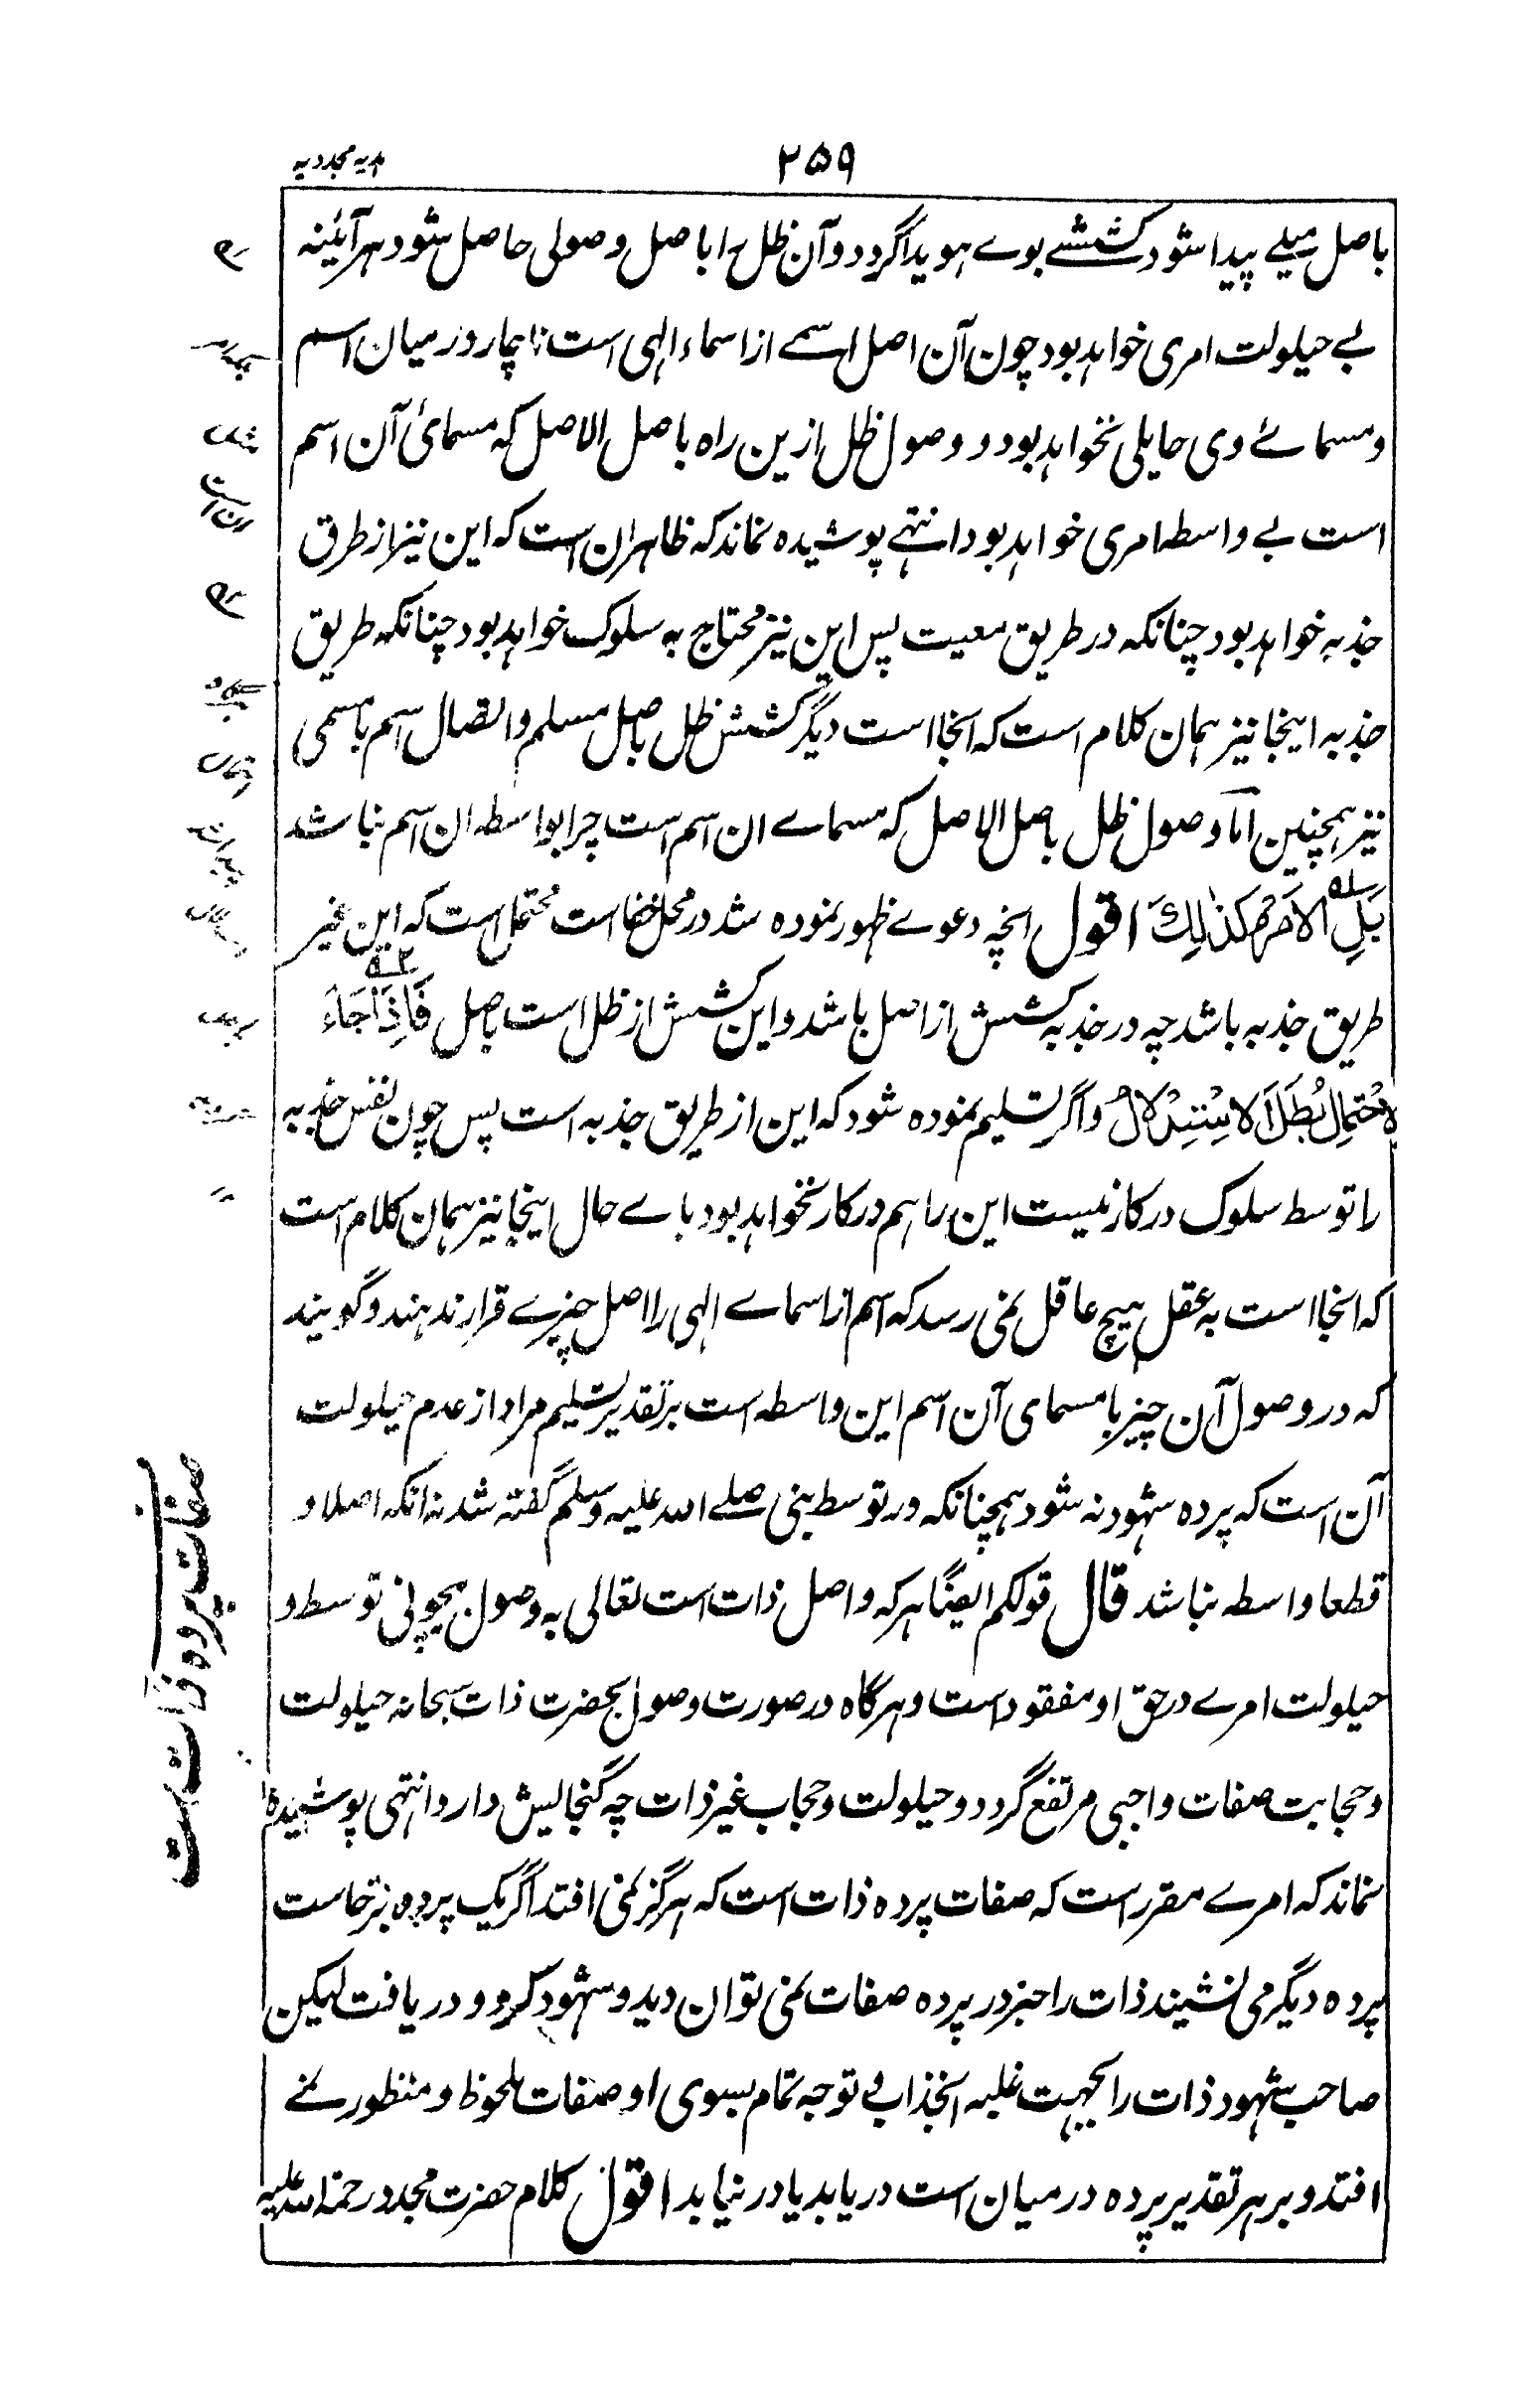 ۲۵۹
ہدیہ مجددیہ
باصل میلے پیدا شود کششے بوے ہویدا گردد و آن ظل را باصل وصولی حاصل شود ہر آئینہ
بے حیلولت امری خواہد بود چون آن اصل اسمے از اسماء الہی است ناچار درمیان اسم
و مسمائے وی حایلی نخواہد بود و وصول ظل ازین راہ باصل الاصل کہ مسمائ آن اسم
است بے واسطہ امری خواہد بود انتہے پوشیدہ نماند کہ ظاہر ان است کہ این نیز از طرق
جذبہ خواہد بود چنانکہ در طریق معیت پس این نیز محتاج بہ سلوک خواہد بود چنانکہ طریق
جذبہ اینجا نیز ہمان کلام است کہ انجا است دیگر کشش ظل باصل مسلم و اتصال اسم با مسمی
نیز ہمچنین اما وصول ظل باصل الاصل کہ مسماے ان اسم است چرا بواسطہ ان اسم نباشد
بَلِ الاَمرُ کذٰلِكَ اقول انچہ دعوے ظہور نمودہ شد در محل خفا است محتمل است کہ این غیر
طریق جذبہ باشد چہ در جذبہ کشش از اصل باشد و این کشش از ظل است باصل فَاِذَا جَاءَ
لاحْتِمال بَطَلَ الاسْتِدْلَالُ و اگر تسلیم نمودہ شود کہ این از طریق جذبہ است پس چون نفس جذبہ
را توسط سلوک درکار نیست این را ہم درکار نخواہد بود باے حال اینجا نیز ہمان کلام است
کہ انجا است بہ عقل ہیچ عاقل نمی رسد کہ اسم از اسماے الہی را اصل چیزے قرار ندہند و گویند
کہ در وصول آن چیز با مسمای آن اسم این واسطہ است بر تقدیر تسلیم مراد از عدم حیلولت
آن است کہ پردہ شہود نہ شود ہمچنانکہ در توسط نبی صلے اللہ علیہ وسلم گفتہ شد نہ انکہ اصلا و
قطعا واسطہ نباشد قال قولکم ایضًا ہر کہ واصل ذات است تعالی بہ وصول بیچونی توسط و
حیلولت امرے در حق او مفقود است و ہرگاہ در صورت وصول بحضرت ذات سبحانہ حیلولت
و حجابت صفات واجبی مرتفع گردد و حیلولت و حجاب غیر ذات چہ گنجایش دارد انتہی پوشیدہ
نماند کہ امرے مقرر است کہ صفات پردہ ذات است کہ ہرگز نمی افتد اگر یک پردہ برخاست
پردہ دیگر می نشیند ذات را جز در پردہ صفات نمی توان دید و شہود کرد و دریافت لیکن
صاحب شہود ذات را بجہت غلبہ انجذاب و توجہ تمام بسوی او صفات ملحوظ و منظور نمے
افتد و بر ہر تقدیر پردہ درمیان است دریابد یا در نیابد اقول کلام حضرت مجدد رحمۃ اللہ علیہ
صفات پردہ ذات است